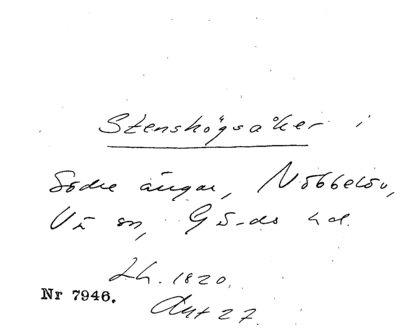 Stenshögsåker i
Södre ängar, Nöbbelöv,
Vä sn, Gä-ds hd.
Lh. 1820.
Nr 7946. Akt 27.